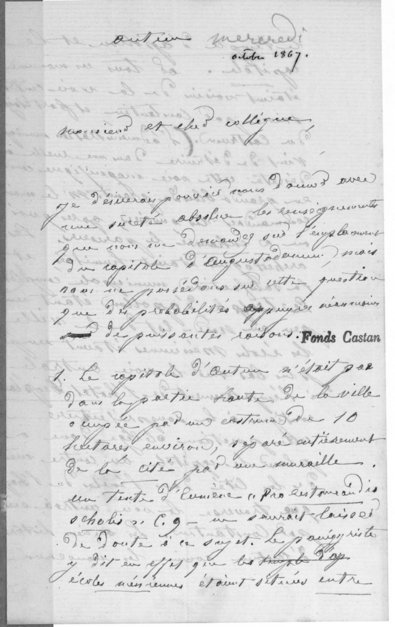 autun mercredi
octobre 1867.
monsieur et cher collègue,
Je désirerais pouvoir vous donner avec
une sureté absolue les renseignements
que vous me demandez sur l'emplacement
du capitole d'augustodunum mais
nous ne possédons sur cette question
que des probabilités appuyées néanmoins
de puissantes raisons.
Fonds Castan
1. Le capitole d'Autun n'était pas
dans la partie haute de la ville
occupée par un castrum de 10
hectares environ, séparé entièrement
de la cité par une muraille.
un texte d'Eumène « Pro restaurandis
scholis » C. 9 - ne saurait laisser
de doute à ce sujet. Le panégyriste
y dit en effet que les
écoles méniennes étaient situées entre